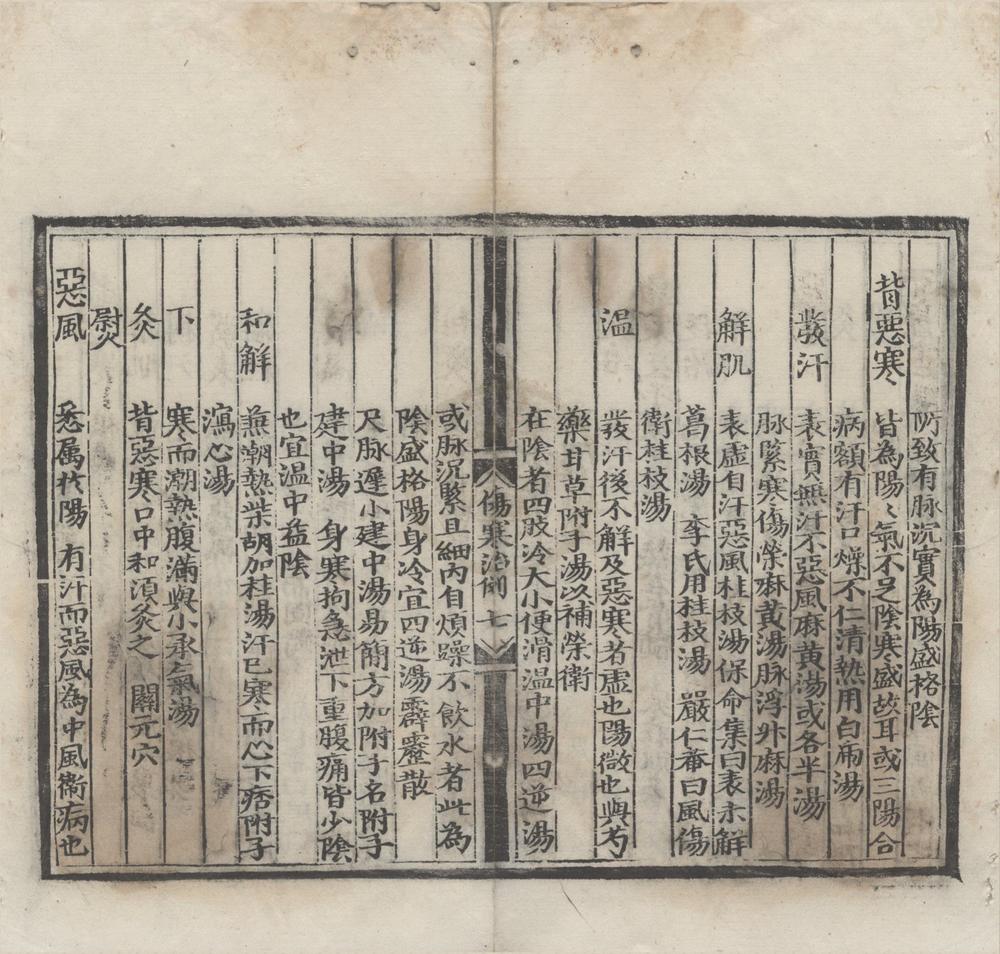 所致有脉沉實為陽盛格陰
背惡寒　皆為陽〻氣不足陰寒盛故耳或三陽合
病額有汗口燥不仁清熱用白乕湯
發汗　表實無汗不惡風麻黄湯或各半湯
脉緊寒傷榮麻黄湯脉浮升麻湯
解肌　表虛自汗惡風桂枝湯保命集曰表未解
葛根湯　李氏用桂枝湯　嚴仁菴曰風傷
衛桂枝湯
温　發汗後不解及惡寒者虛也陽微也與芍
藥甘草附子湯以補榮衛
在陰者四肢冷大小便滑溫中湯四逆湯
傷寒治例　七
或脉沉緊且細內自煩躁不飲水者此為
陰盛格陽身冷宜四逆湯霹靂散
尺脉遲小建中湯易簡方加附子名附子
建中湯　身寒拘急泄下重腹痛皆少陰
也宜温中益陰
和解　兼潮熱柴胡加桂湯汗已寒而心下痞附子
瀉心湯
下　寒而潮熱腹滿與小承气湯
灸　背惡寒口中和須灸之　關元穴
熨
惡風　悉属於陽　有汗而惡風為中風衛病也